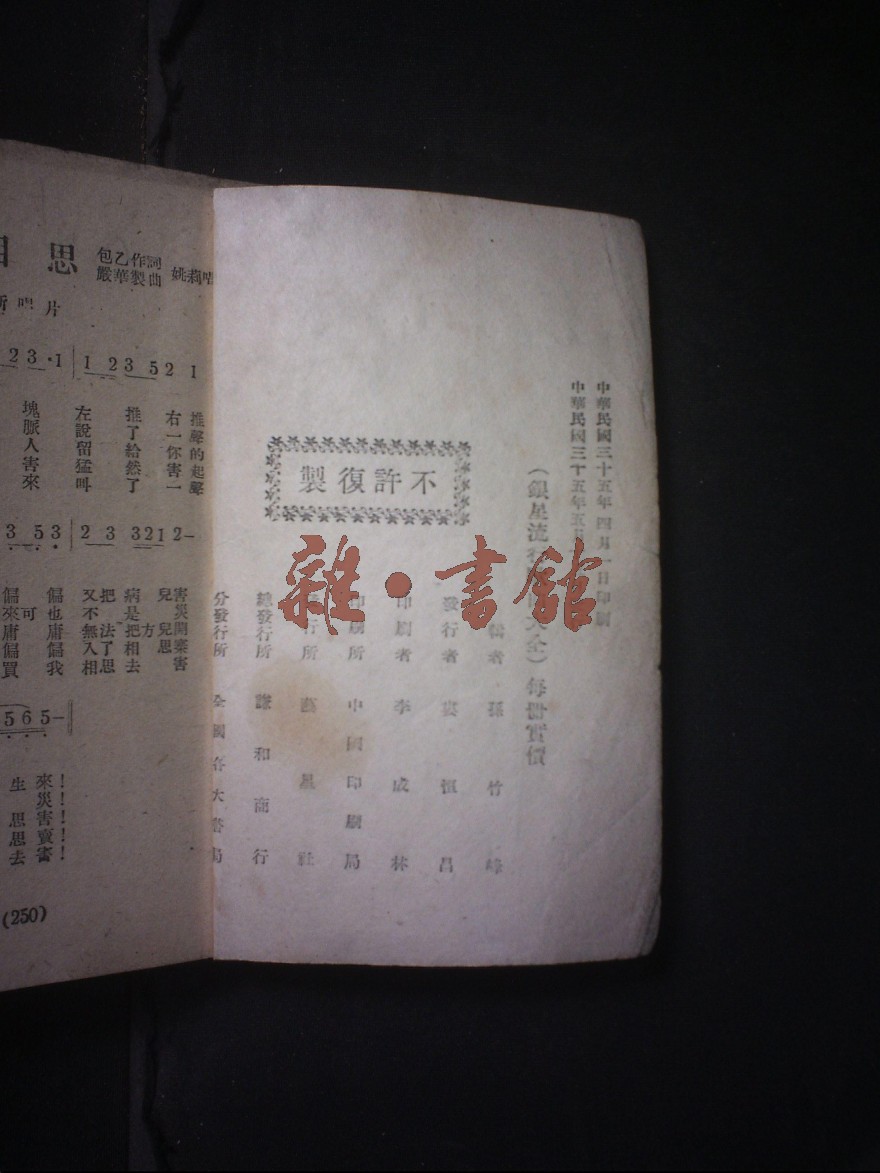 中華民國三十五年四月一日印刷
中華民國三十五年五月
（銀星流行 大全）每冊實價
不許復製
者 孫竹峰
發行者 裴恒昌
印刷者 李成林
印刷所 中國印刷局
行所 藝星社
總發行所 謙和商行
分發行所 全國各大書局
雜·書館
思
包乙作詞
嚴華製曲
姚莉唱
唱片
2 3 ·1 | 1 2 3 5 2 1
推聲的起聲
右一你害一
推了給然了
左說留猛叫
塊脈人害來
3 5 3 2 3 3 2 1 2 –
害災開棄害
兒兒思
病是把相去
把法了思
又不無入相
偏也庸偏我
可
偏來庸偏買
5 6 5 –
來災害賣害
生思思去
！！！！！
(250)